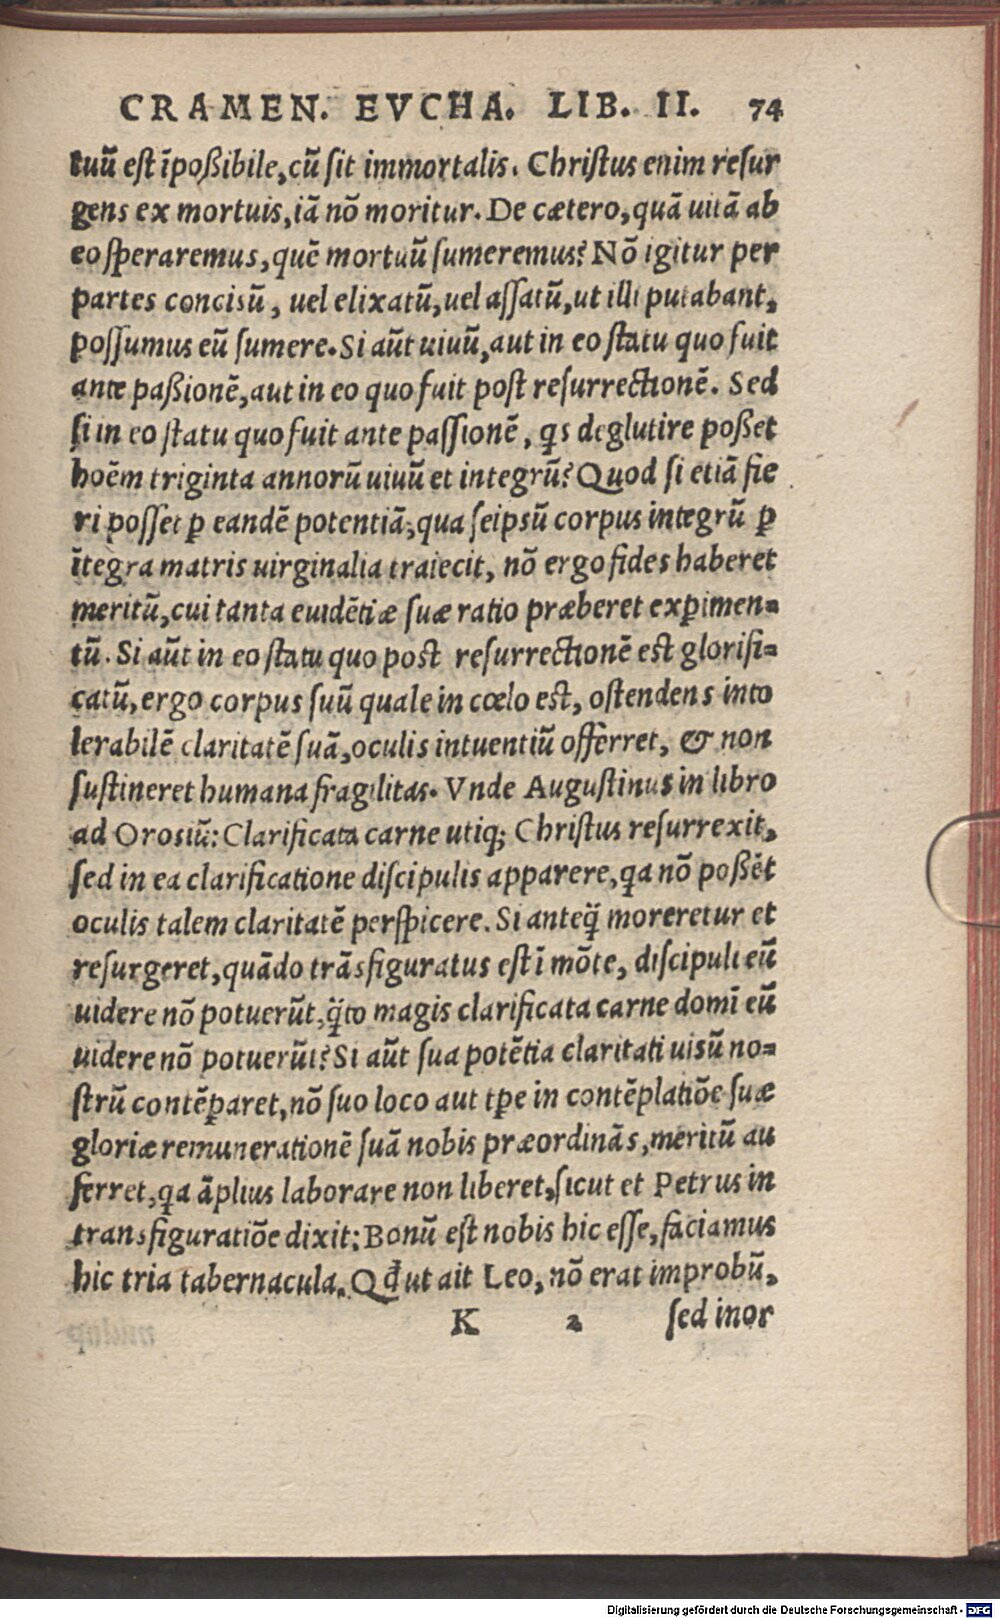 CRAMEN. EVCHA. LIB. II. 74
tuū est īpoßibile, cū sit immortalis. Christus enim resur
gens ex mortuis, iā nō moritur. De cætero, quā uitā ab
eo speraremus, quē mortuū sumeremus? Nō igitur per
partes concisū, uel elixatū, uel assatū, ut illi putabant,
possumus eū sumere. Si aūt uiuū, aut in eo statu quo fuit
ante paßionē, aut in eo quo fuit post resurrectionē. Sed
si in eo statu quo fuit ante passionē, qs deglutire poßet
hoēm triginta annorū uiuū et integrū? Quod si etiā fie
ri posset ꝑ eandē potentiā, qua seipsū corpus integrū ꝑ
ītegra matris uirginalia traiecit, nō ergo fides haberet
meritū, cui tanta euidētiæ suæ ratio præberet exꝑimen=
tū. Si aūt in eo statu quo post resurrectionē est glorifi=
catū, ergo corpus suū quale in cœlo est, ostendens into
lerabilē claritatē suā, oculis intuentiū offerret, & non
sustineret humana fragilitas. Vnde Augustinus in libro
ad Orosiū: Clarificata carne utiq; Christus resurrexit,
sed in ea clarificatione discipulis apparere, qa nō poßēt
oculis talem claritatē perspicere. Si anteq̄ moreretur et
resurgeret, quādo trāsfiguratus est ī mōte, discipuli eū
uidere nō potuerūt, q̄to magis clarificata carne domī eū
uidere nō potuerūt? Si aūt sua potētia claritati uisū no=
strū contēꝑaret, nō suo loco aut tꝑe in contēplatiōe suæ
gloriæ remunerationē suā nobis præordinās, meritū au
ferret, qa āplius laborare non liberet, sicut et Petrus in
transfiguratiōe dixit: Bonū est nobis hic esse, faciamus
hic tria tabernacula. Qđ ut ait Leo, nō erat improbū,
K 2 sed inor
Digitalisierung gefördert durch die Deutsche Forschungsgemeinschaft - DFG